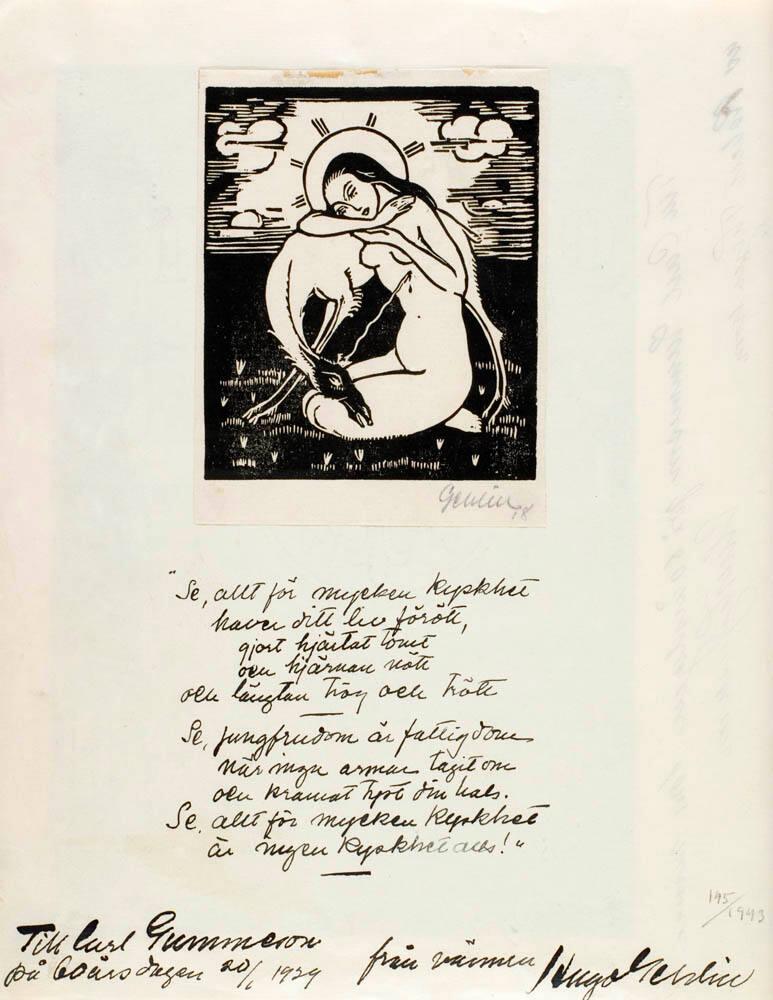 Gehlin
18
"Se, allt för mycken kyskhet
haver ditt liv förött,
gjort hjärtat tomt
och hjärnan nött
och längtan trög och trött
Se, jungfrudom är fattigdom
när ingen armar tagit om
och kramat hjst din hals.
Se, allt för mycken kyskhet
är ingen kyskhet alls!"
195/1943
Till Carl Gummeson
på 60årsdagen 20/1 1929
från vännen Hugo Gehlin